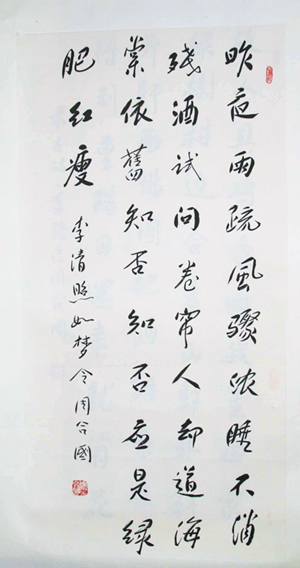 昨夜雨疏風驟浓睡不消
残酒试问卷帘人却道海
棠依舊知否知否应是绿
肥红瘦 李清照如梦令周國